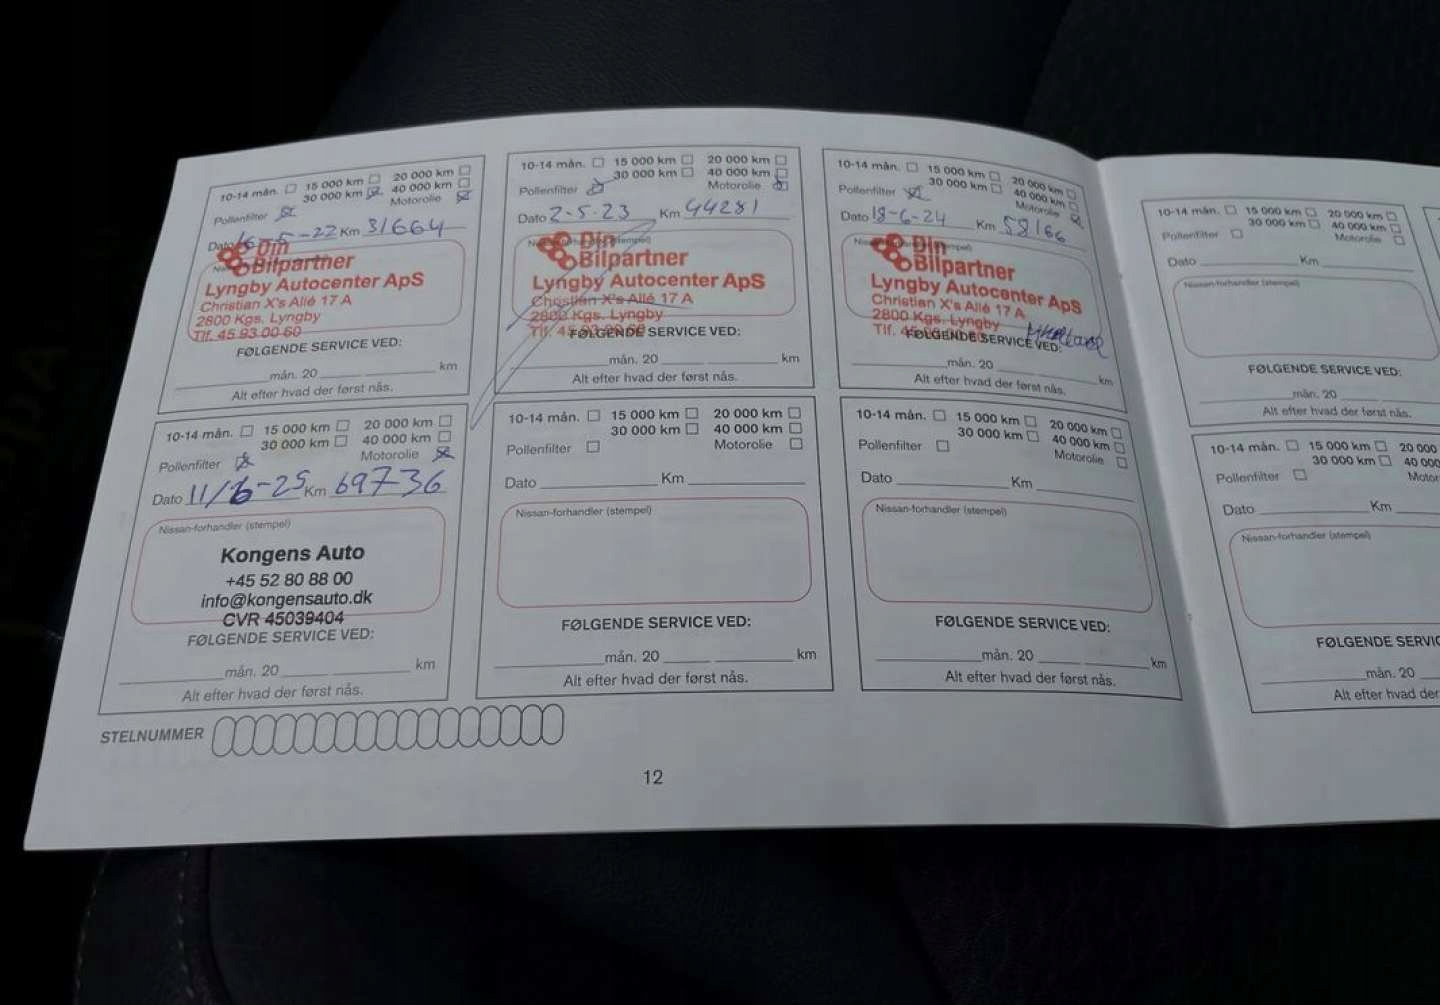 10-14 mån. 15 000 km 20 000 km
30 000 km 40 000 km
Pollenfilter Motorolie
Dato 16-5-22 Km 31664
Din
Bilpartner
Lyngby Autocenter ApS
Christian X's Allé 17 A
2800 Kgs. Lyngby
Tlf. 45 93 00 60
FØLGENDE SERVICE VED:
mån. 20 km
Alt efter hvad der først nås.
10-14 mån. 15 000 km 20 000 km
30 000 km 40 000 km
Pollenfilter Motorolie
Dato 2-5-23 Km 44281
Din
Bilpartner
Lyngby Autocenter ApS
Christian X's Allé 17 A
2800 Kgs. Lyngby
Tlf. 45 93 00 60
FØLGENDE SERVICE VED:
mån. 20 km
Alt efter hvad der først nås.
10-14 mån. 15 000 km 20 000 km
30 000 km 40 000 km
Pollenfilter Motorolie
Dato 18-6-24 Km 58166
Din
Bilpartner
Lyngby Autocenter ApS
Christian X's Allé 17 A
2800 Kgs. Lyngby
Tlf.
FØLGENDE SERVICE VED:
mån. 20 km
Alt efter hvad der først nås.
10-14 mån. 15 000 km 20 000 km
30 000 km 40 000 km
Pollenfilter Motorolie
Dato Km
Nissan-forhandler (stempel)
FØLGENDE SERVICE VED:
mån. 20 km
Alt efter hvad der først nås.
10-14 mån. 15 000 km 20 000 km
30 000 km 40 000 km
Pollenfilter Motorolie
Dato 11/6-25 Km 69736
Nissan-forhandler (stempel)
Kongens Auto
+45 52 80 88 00
info@kongensauto.dk
CVR 45039404
FØLGENDE SERVICE VED:
mån. 20 km
Alt efter hvad der først nås.
10-14 mån. 15 000 km 20 000 km
30 000 km 40 000 km
Pollenfilter Motorolie
Dato Km
Nissan-forhandler (stempel)
FØLGENDE SERVICE VED:
mån. 20 km
Alt efter hvad der først nås.
10-14 mån. 15 000 km 20 000 km
30 000 km 40 000 km
Pollenfilter Motorolie
Dato Km
Nissan-forhandler (stempel)
FØLGENDE SERVICE VED:
mån. 20 km
Alt efter hvad der først nås.
10-14 mån. 15 000 km 20 000
30 000 km 40 000
Pollenfilter Motor
Dato Km
Nissan-forhandler (stempel)
FØLGENDE SERVIC
mån. 20
Alt efter hvad der
STELNUMMER
12